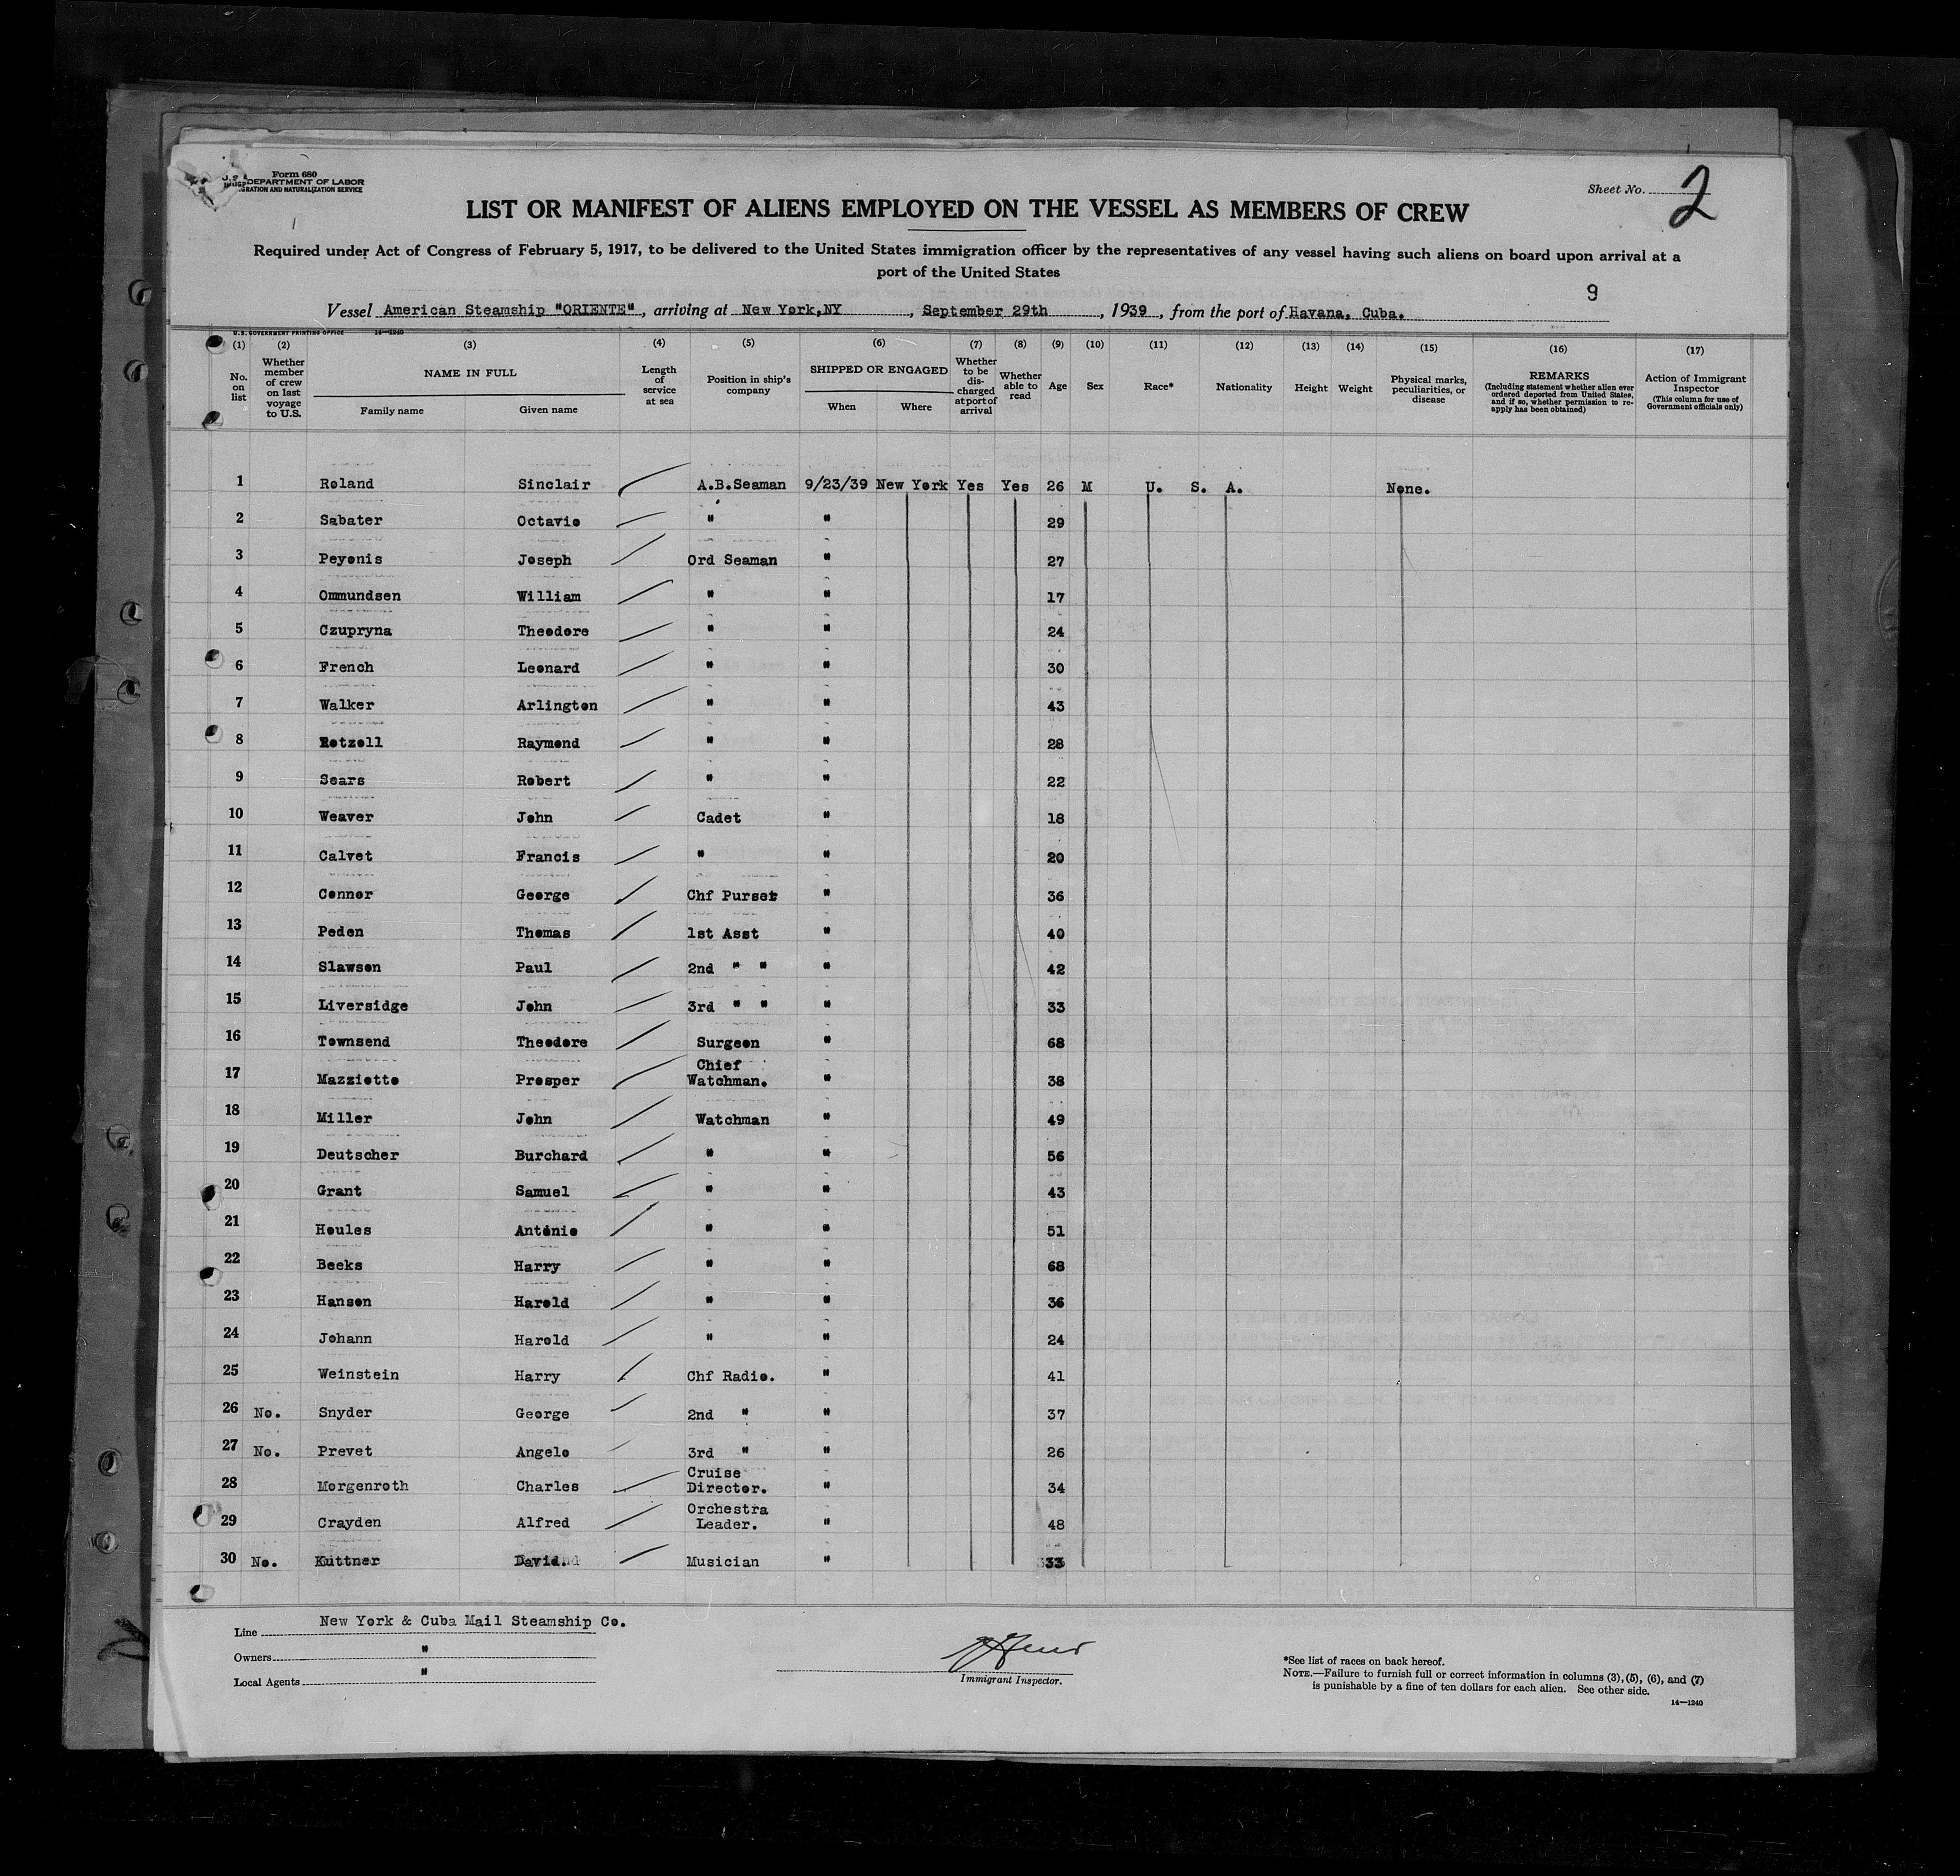 Form 680
DEPARTMENT OF LABOR
IMMIGRATION AND NATURALIZATION SERVICE
Sheet No. 2
LIST OR MANIFEST OF ALIENS EMPLOYED ON THE VESSEL AS MEMBERS OF CREW
Required under Act of Congress of February 5, 1917, to be delivered to the United States immigration officer by the representatives of any vessel having such aliens on board upon arrival at a
port of the United States
9
Vessel American Steamship "ORIENTE", arriving at New York,NY, September 29th, 1939, from the port of Havana, Cuba.
U.S. GOVERNMENT PRINTING OFFICE 14—1240
(1) (2) (3) (4) (5) (6) (7) (8) (9) (10) (11) (12) (13) (14) (15) (16) (17)
No. on list
Whether member of crew on last voyage to U.S.
NAME IN FULL
Family name Given name
Length of service at sea
Position in ship's company
SHIPPED OR ENGAGED
When Where
Whether to be discharged at port of arrival
Whether able to read
Age
Sex
Race*
Nationality
Height
Weight
Physical marks, peculiarities, or disease
REMARKS
(Including statement whether alien ever ordered deported from United States, and if so, whether permission to reapply has been obtained)
Action of Immigrant Inspector
(This column for use of Government officials only)
1 Roland Sinclair A.B.Seaman 9/23/39 New York Yes Yes 26 M U. S. A. None.
2 Sabater Octavio " " 29
3 Peyonis Joseph Ord Seaman " 27
4 Ommundsen William " " 17
5 Czupryna Theodore " " 24
6 French Leonard " " 30
7 Walker Arlington " " 43
8 Retzell Raymond " " 28
9 Sears Robert " " 22
10 Weaver John Cadet " 18
11 Calvet Francis " " 20
12 Connor George Chf Purser " 36
13 Peden Thomas 1st Asst " 40
14 Slawson Paul 2nd " " " 42
15 Liversidge John 3rd " " " 33
16 Townsend Theodore Surgeon " 68
17 Mazziotto Prosper Chief Watchman. " 38
18 Miller John Watchman " 49
19 Deutscher Burchard " " 56
20 Grant Samuel " " 43
21 Houles Antonio " " 51
22 Beeks Harry " " 68
23 Hanson Harold " " 36
24 Johann Harold " " 24
25 Weinstein Harry Chf Radio. " 41
26 No. Snyder George 2nd " " 37
27 No. Prevet Angelo 3rd " " 26
28 Morgenroth Charles Cruise Director. " 34
29 Crayden Alfred Orchestra Leader. " 48
30 No. Kuttner David. Musician " 33
Line New York & Cuba Mail Steamship Co.
Owners "
Local Agents "
Immigrant Inspector.
*See list of races on back hereof.
NOTE.—Failure to furnish full or correct information in columns (3), (5), (6), and (7)
is punishable by a fine of ten dollars for each alien. See other side.
14—1240